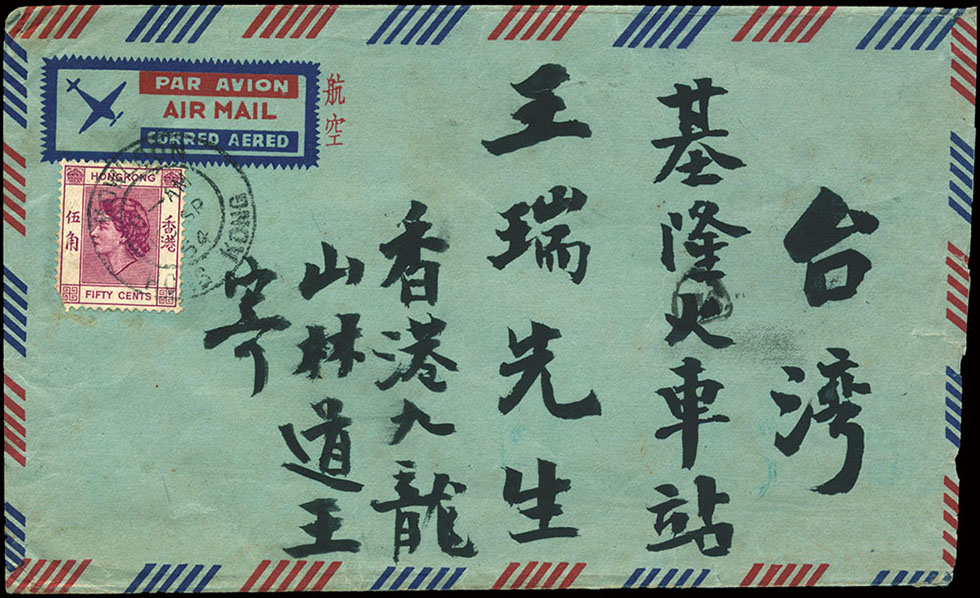 PAR AVION
AIR MAIL
CORREO AEREO
航空
HONG KONG
伍角
香港
FIFTY CENTS
KONG
台湾
基隆火車站
王瑞先生
香港九龍
山林道王
寄